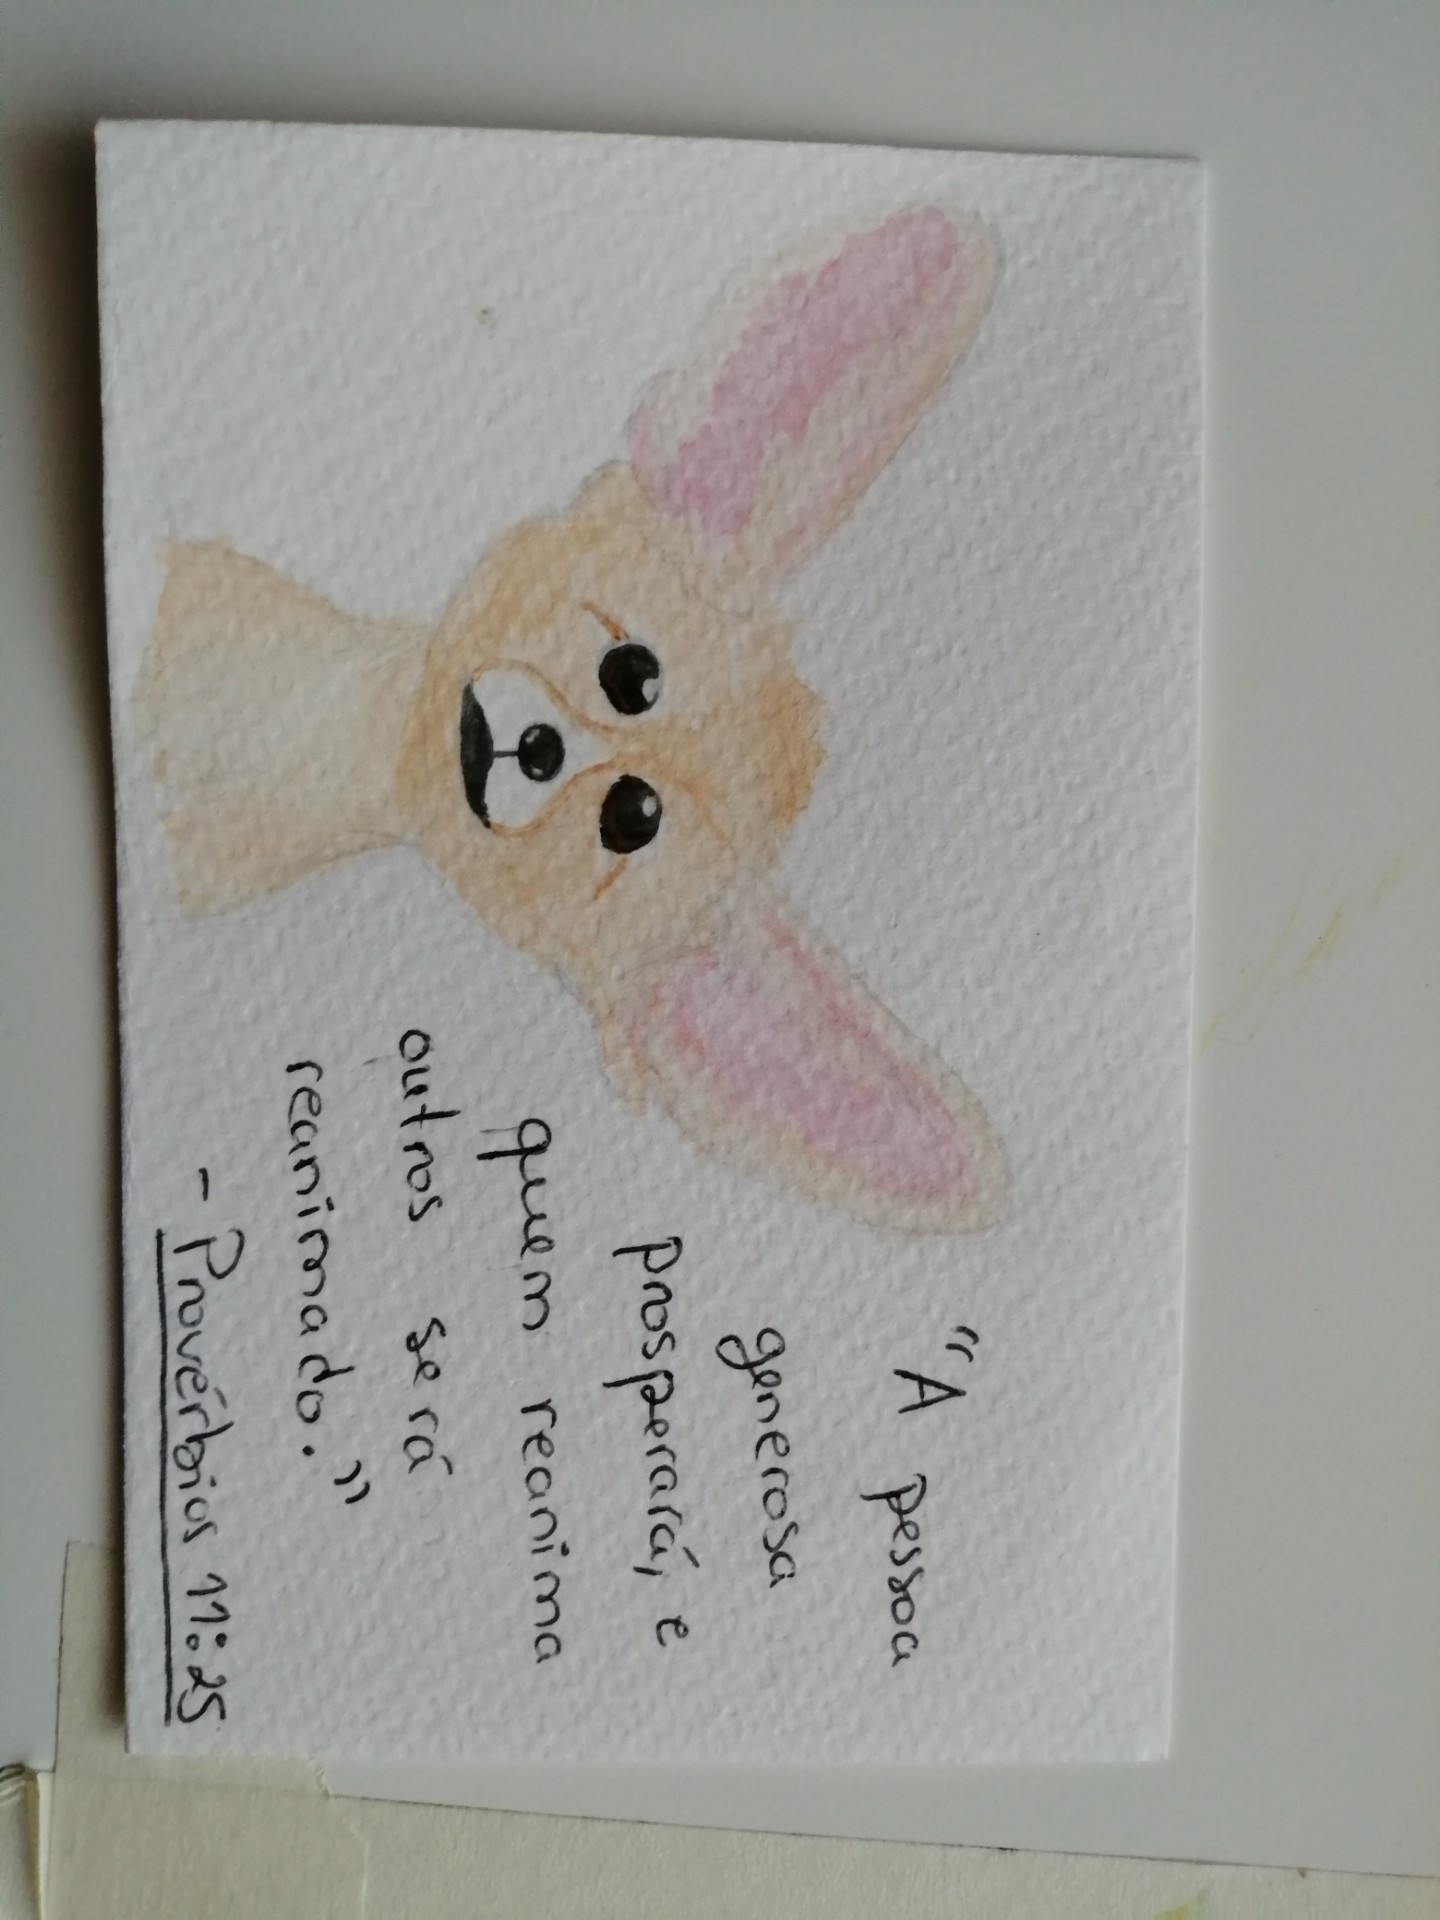 "A pessoa
generosa
prosperará, e
quem reanima
outros será
reanimado."
- Provérbios 11:25